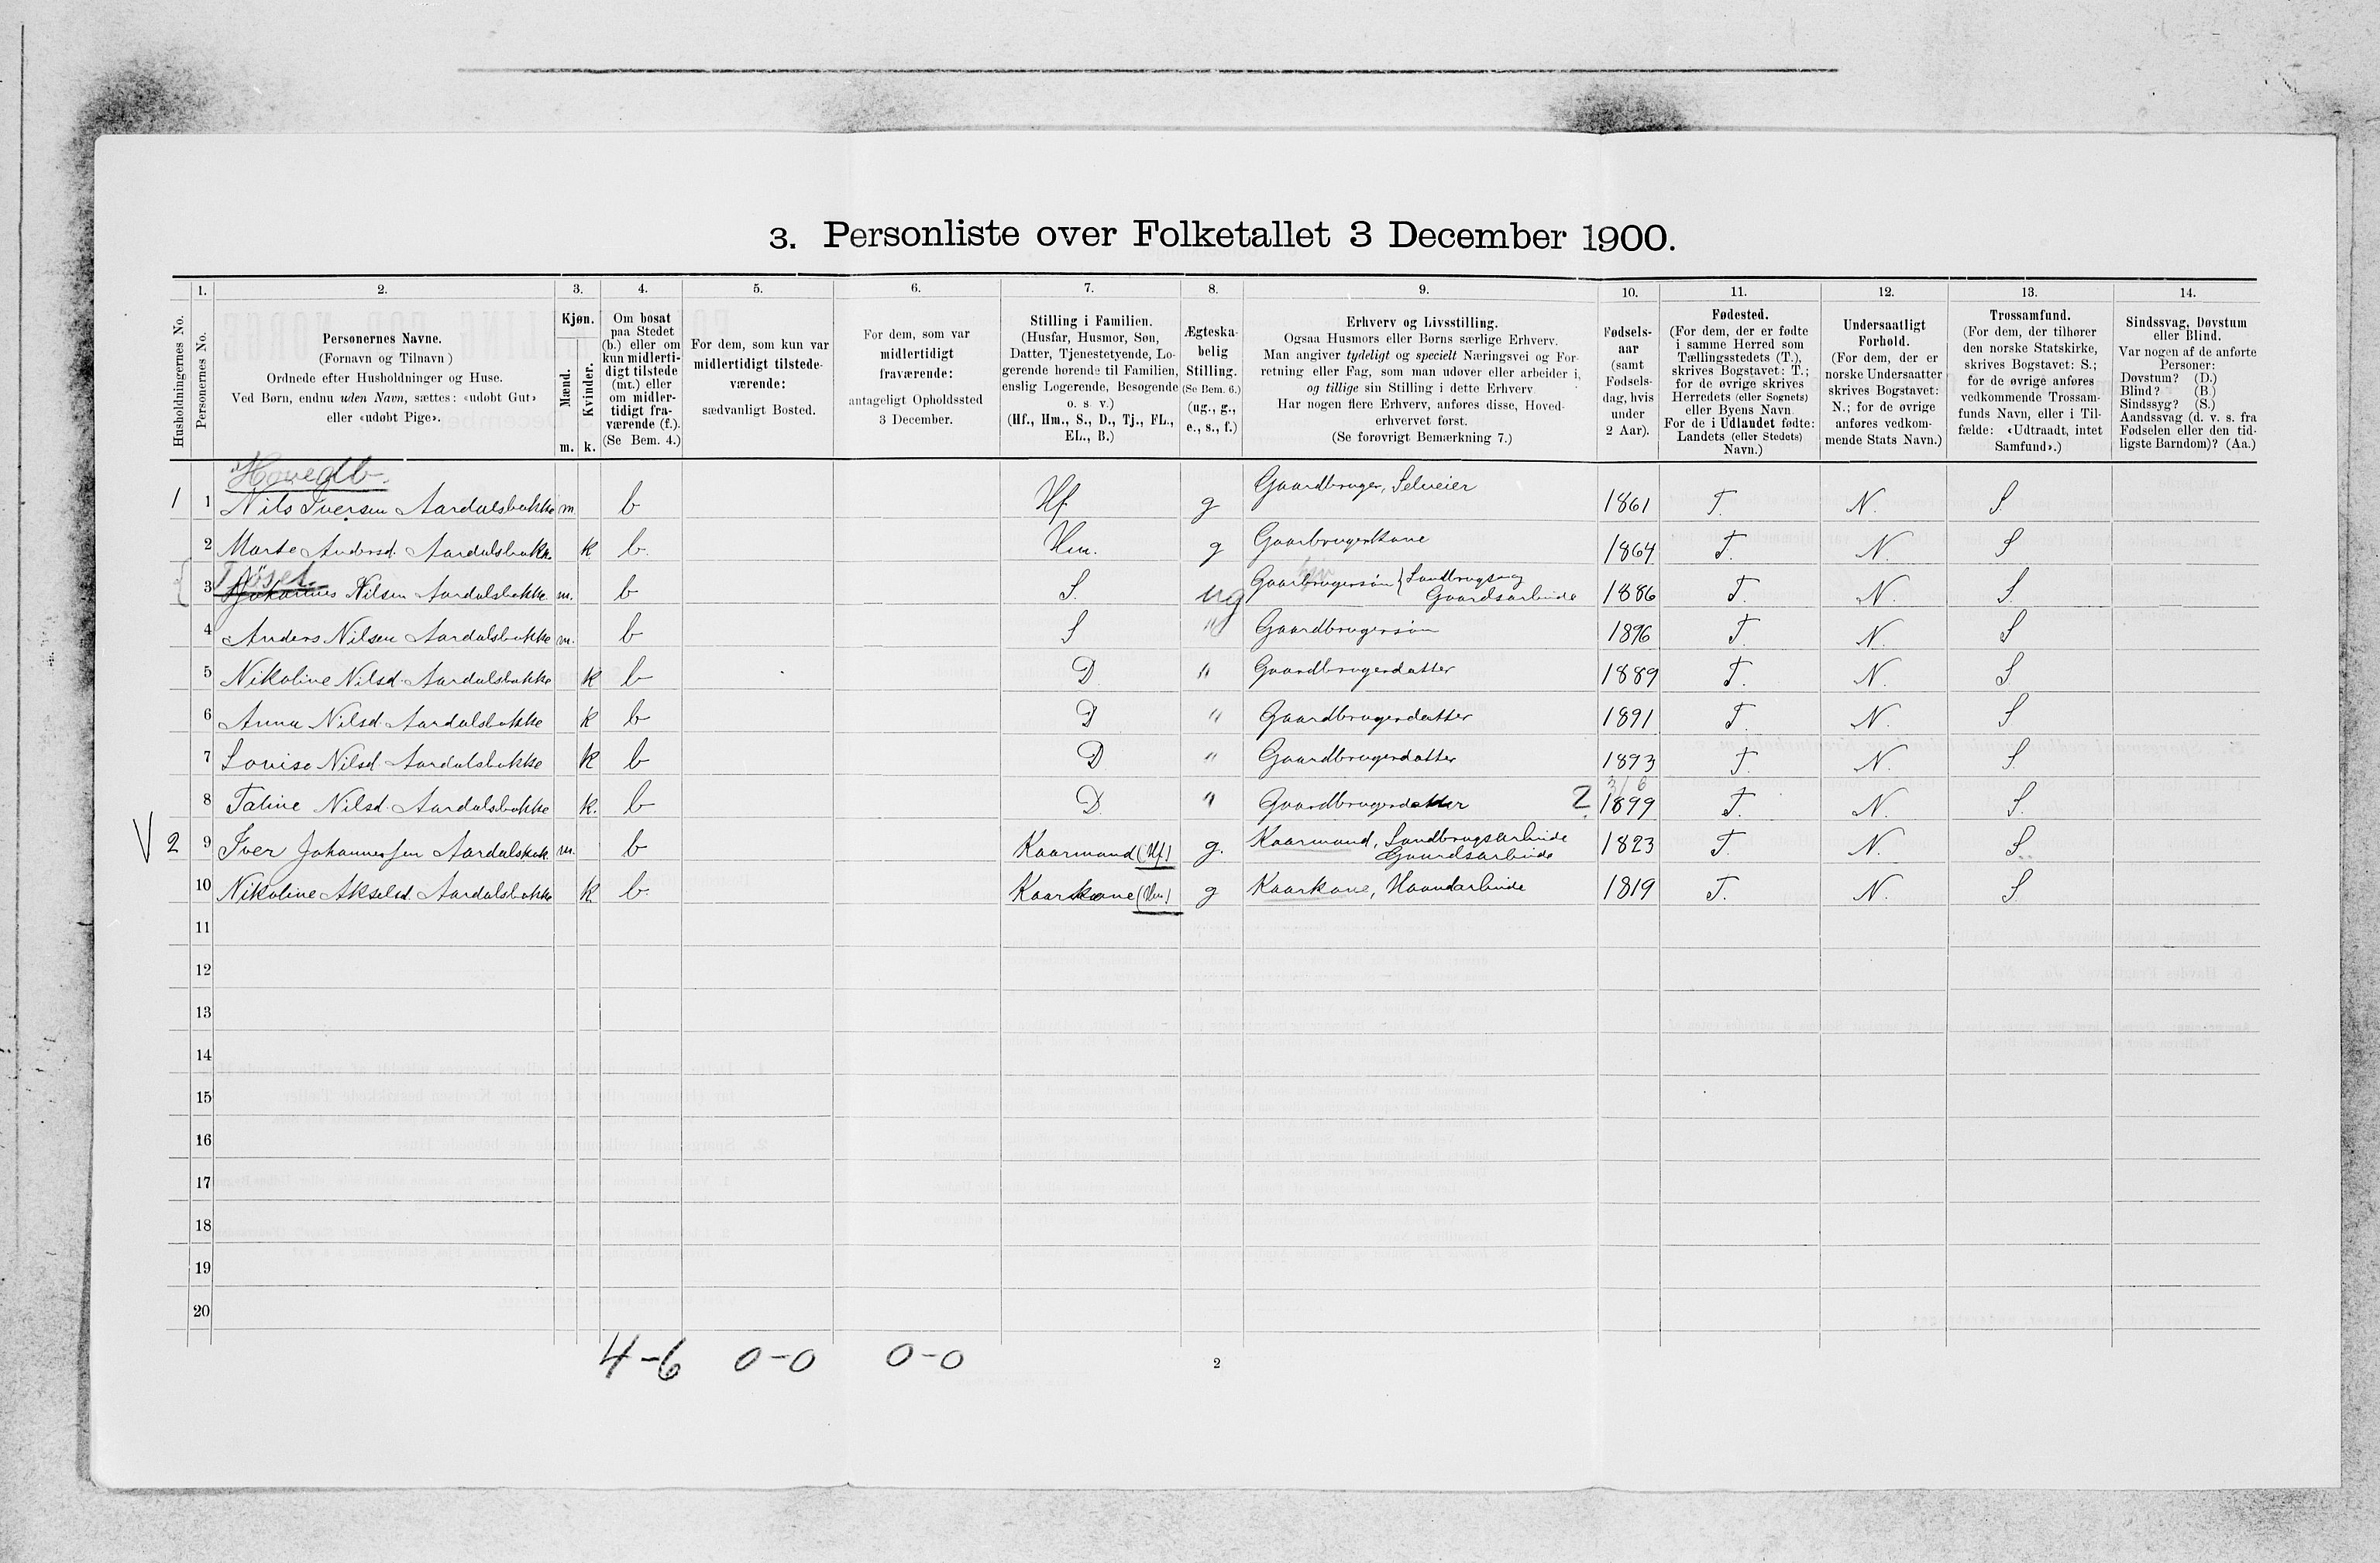 3. Personliste over Folketallet 3 December 1900.
1. 2. 3. 4. 5. 6. 7. 8. 9. 10. 11. 12. 13. 14.
Husholdningernes No.
Personernes No.
Personernes Navne.
(Fornavn og Tilnavn)
Ordnede efter Husholdninger og Huse.
Ved Børn, endnu uden Navn, sættes: «udøbt Gut»
eller «udøbt Pige».
Kjøn.
Mænd.
Kvinder.
m. k.
Om bosat
paa Stedet
(b.) eller om
kun midlerti-
digt tilstede
(mt.) eller
om midler-
tidigt fra-
værende (f.).
(Se Bem. 4.)
For dem, som kun var
midlertidigt tilstede-
værende:
sædvanligt Bosted.
For dem, som var
midlertidigt
fraværende:
antageligt Opholdssted
3 December.
Stilling i Familien.
(Husfar, Husmor, Søn,
Datter, Tjenestetyende, Lo-
gerende hørende til Familien,
enslig Logerende, Besøgende
o. s. v.)
(Hf., Hm., S., D., Tj., FL.,
EL., B.)
Ægteska-
belig
Stilling.
(Se Bem. 6.)
(ug., g.,
e., s., f.)
Erhverv og Livsstilling.
Ogsaa Husmors eller Børns særlige Erhverv.
Man angiver tydeligt og specielt Næringsvei og For-
retning eller Fag, som man udøver eller arbeider i,
og tillige sin Stilling i dette Erhverv
Har nogen flere Erhverv, anføres disse, Hoved-
erhvervet først.
(Se forøvrigt Bemærkning 7.)
Fødsels-
aar
(samt
Fødsels-
dag, hvis
under
2 Aar).
Fødested.
(For dem, der er fødte
i samme Herred som
Tællingsstedets (T.),
skrives Bogstavet: T.;
for de øvrige skrives
Herredets (eller Sognets)
eller Byens Navn.
For de i Udlandet fødte:
Landets (eller Stedets)
Navn.)
Undersaatligt
Forhold.
(For dem, der er
norske Undersaatter
skrives Bogstavet:
N.; for de øvrige
anføres vedkom-
mende Stats Navn.)
Trossamfund.
(For dem, der tilhører
den norske Statskirke,
skrives Bogstavet: S.;
for de øvrige anføres
vedkommende Trossam-
funds Navn, eller i Til-
fælde: «Udtraadt, intet
Samfund».)
Sindssvag, Døvstum
eller Blind.
Var nogen af de anførte
Personer:
Døvstum? (D.)
Blind? (B.)
Sindssyg? (S.)
Aandssvag (d. v. s. fra
Fødselen eller den tid-
ligste Barndom)? (Aa.)
1 1 Nils Iversen Aardalsbakke m. b Hf. g Gaardbruger, Selveier 1861 T. N. S.
2 Marte Andersd. Aardalsbakke k b. Hm. g Gaarbrugerkone 1864 T. N. S
3 Johannes Nilsen Aardalsbakke m. b S. ug Gaarbrugersøn } Landbrugs og
Gaardsarbeide 1886 T. N. S.
4 Anders Nilsen Aardalsbakke m. b S " Gaardbrugersøn 1896 T. N. S
5 Nikoline Nilsd. Aardalsbakke k b D " Gaardbrugerdatter 1889 T. N. S
6 Anna Nilsd. Aardalsbakke k b D " Gaardbrugerdatter 1891 T. N. S
7 Lovise Nilsd. Aardalsbakke k b D " Gaardbrugerdatter 1893 T. N. S.
8 Taline Nilsd. Aardalsbakke k. b D. " Gaardbrugerdatter 2 3/6 1899 T. N. S.
V 2 9 Iver Johannessen Aardalsbak. m. b Kaarmand (Hf) g. Kaarmand, Landbrugsarbeide
Gaardsarbeide 1823 T. N. S
10 Nikoline Akselsd. Aardalsbakke k b. Kaarkone (Hm) g Kaarkone, Haandarbeide 1819 T. N. S
11
12
13
14
15
16
17
18
19
20
4-6 0-0 0-0
2